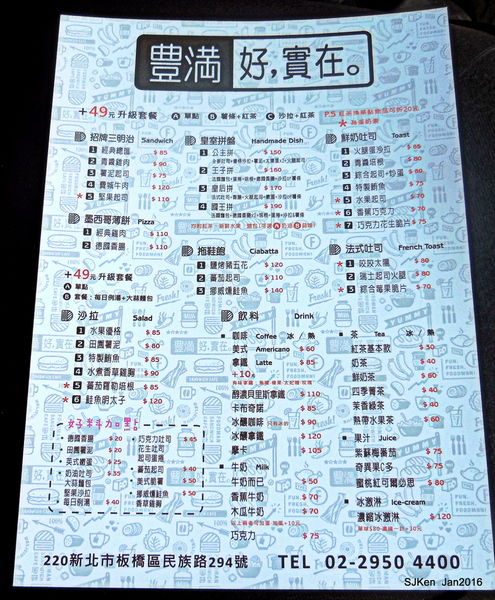 豐滿 好,實在。
+49元 升級套餐 A 單點 B 薯條+紅茶 C 沙拉+紅茶
P.S 紅茶換單點飲品可折20元
* 為蛋奶素
招牌三明治 Sandwich
1 經典總匯 $ 85
2 青醬雞肉 $ 90
3 薯泥起司 $ 75
4 費城牛肉 $ 120
* 5 堅果起司 $ 110
墨西哥薄餅 Pizza
1 經典雞肉 $ 110
2 德國香腸 $ 110
皇室拼盤 Handmade Dish
1 公主拼 $ 150
2 王子拼 $ 160
3 皇后拼 $ 170
4 國王拼 $ 190
拖鞋飽 Ciabatta
1 鹽烤豬五花 $ 120
2 蕃茄起司 $ 110
3 挪威燻鮭魚 $ 140
鮮奶吐司 Toast
1 火腿蛋沙拉 $ 65
2 青醬培根 $ 80
3 綜合起司+炒蛋 $ 80
4 特製鮪魚 $ 75
* 5 水果起司 $ 70
* 6 香蕉巧克力 $ 70
* 7 巧克力花生脆片 $ 75
法式吐司 French Toast
1 咬咬太陽 $ 80
2 瑞士起司火腿 $ 80
* 3 綜合莓果脆片 $ 70
+49元 升級套餐
A 單點
B 套餐:每日例湯+大蒜麵包
沙拉 Salad
1 水果優格 $ 85
2 田園薯泥 $ 80
3 特製鮪魚 $ 85
4 水煮香草雞胸 $ 90
* 5 蕃茄蘿勒培根 $ 85
* 6 鮭魚明太子 $ 120
好料加點
德國香腸 $ 20
田園薯泥 $ 20
英式嫩蛋 $ 25
奶油吐司 $ 35
大蒜麵包
堅果沙拉
每日例湯 $ 40
巧克力吐司 $ 45
花生吐司
起司薯條
蕃茄起司 $ 40
美式鬆薯 $ 50
挪威燻鮭魚 $ 50
香草雞胸
飲料 Drink
咖啡 Coffee 冰 / 熱
美式 Americano $ 60
拿鐵 Latte $ 85
+10元
醇濃貝里斯拿鐵 $ 110
卡布奇諾 $ 85
冰釀咖啡 只有冰的 $ 90
冰釀拿鐵 $ 120
摩卡 $ 105
牛奶 Milk
牛奶而已 $ 50
香蕉牛奶 $ 70
木瓜牛奶 $ 70
巧克力 $ 75
茶 Tea 冰 / 熱
紅茶基本款 $ 30
奶茶 $ 40
鮮奶茶 $ 60
四季菁茶 $ 40
茉香綠茶 $ 40
熱帶水果茶 $ 60
果汁 Juice
紫蘇梅番茄 $ 75
奇異果C多 $ 75
蜜桃紅可爾必思 $ 80
冰激淋 Ice-cream
濃縮冰激淋 $ 120
220新北市板橋區民族路294號 TEL 02-2950 4400
SJKen Jan2016